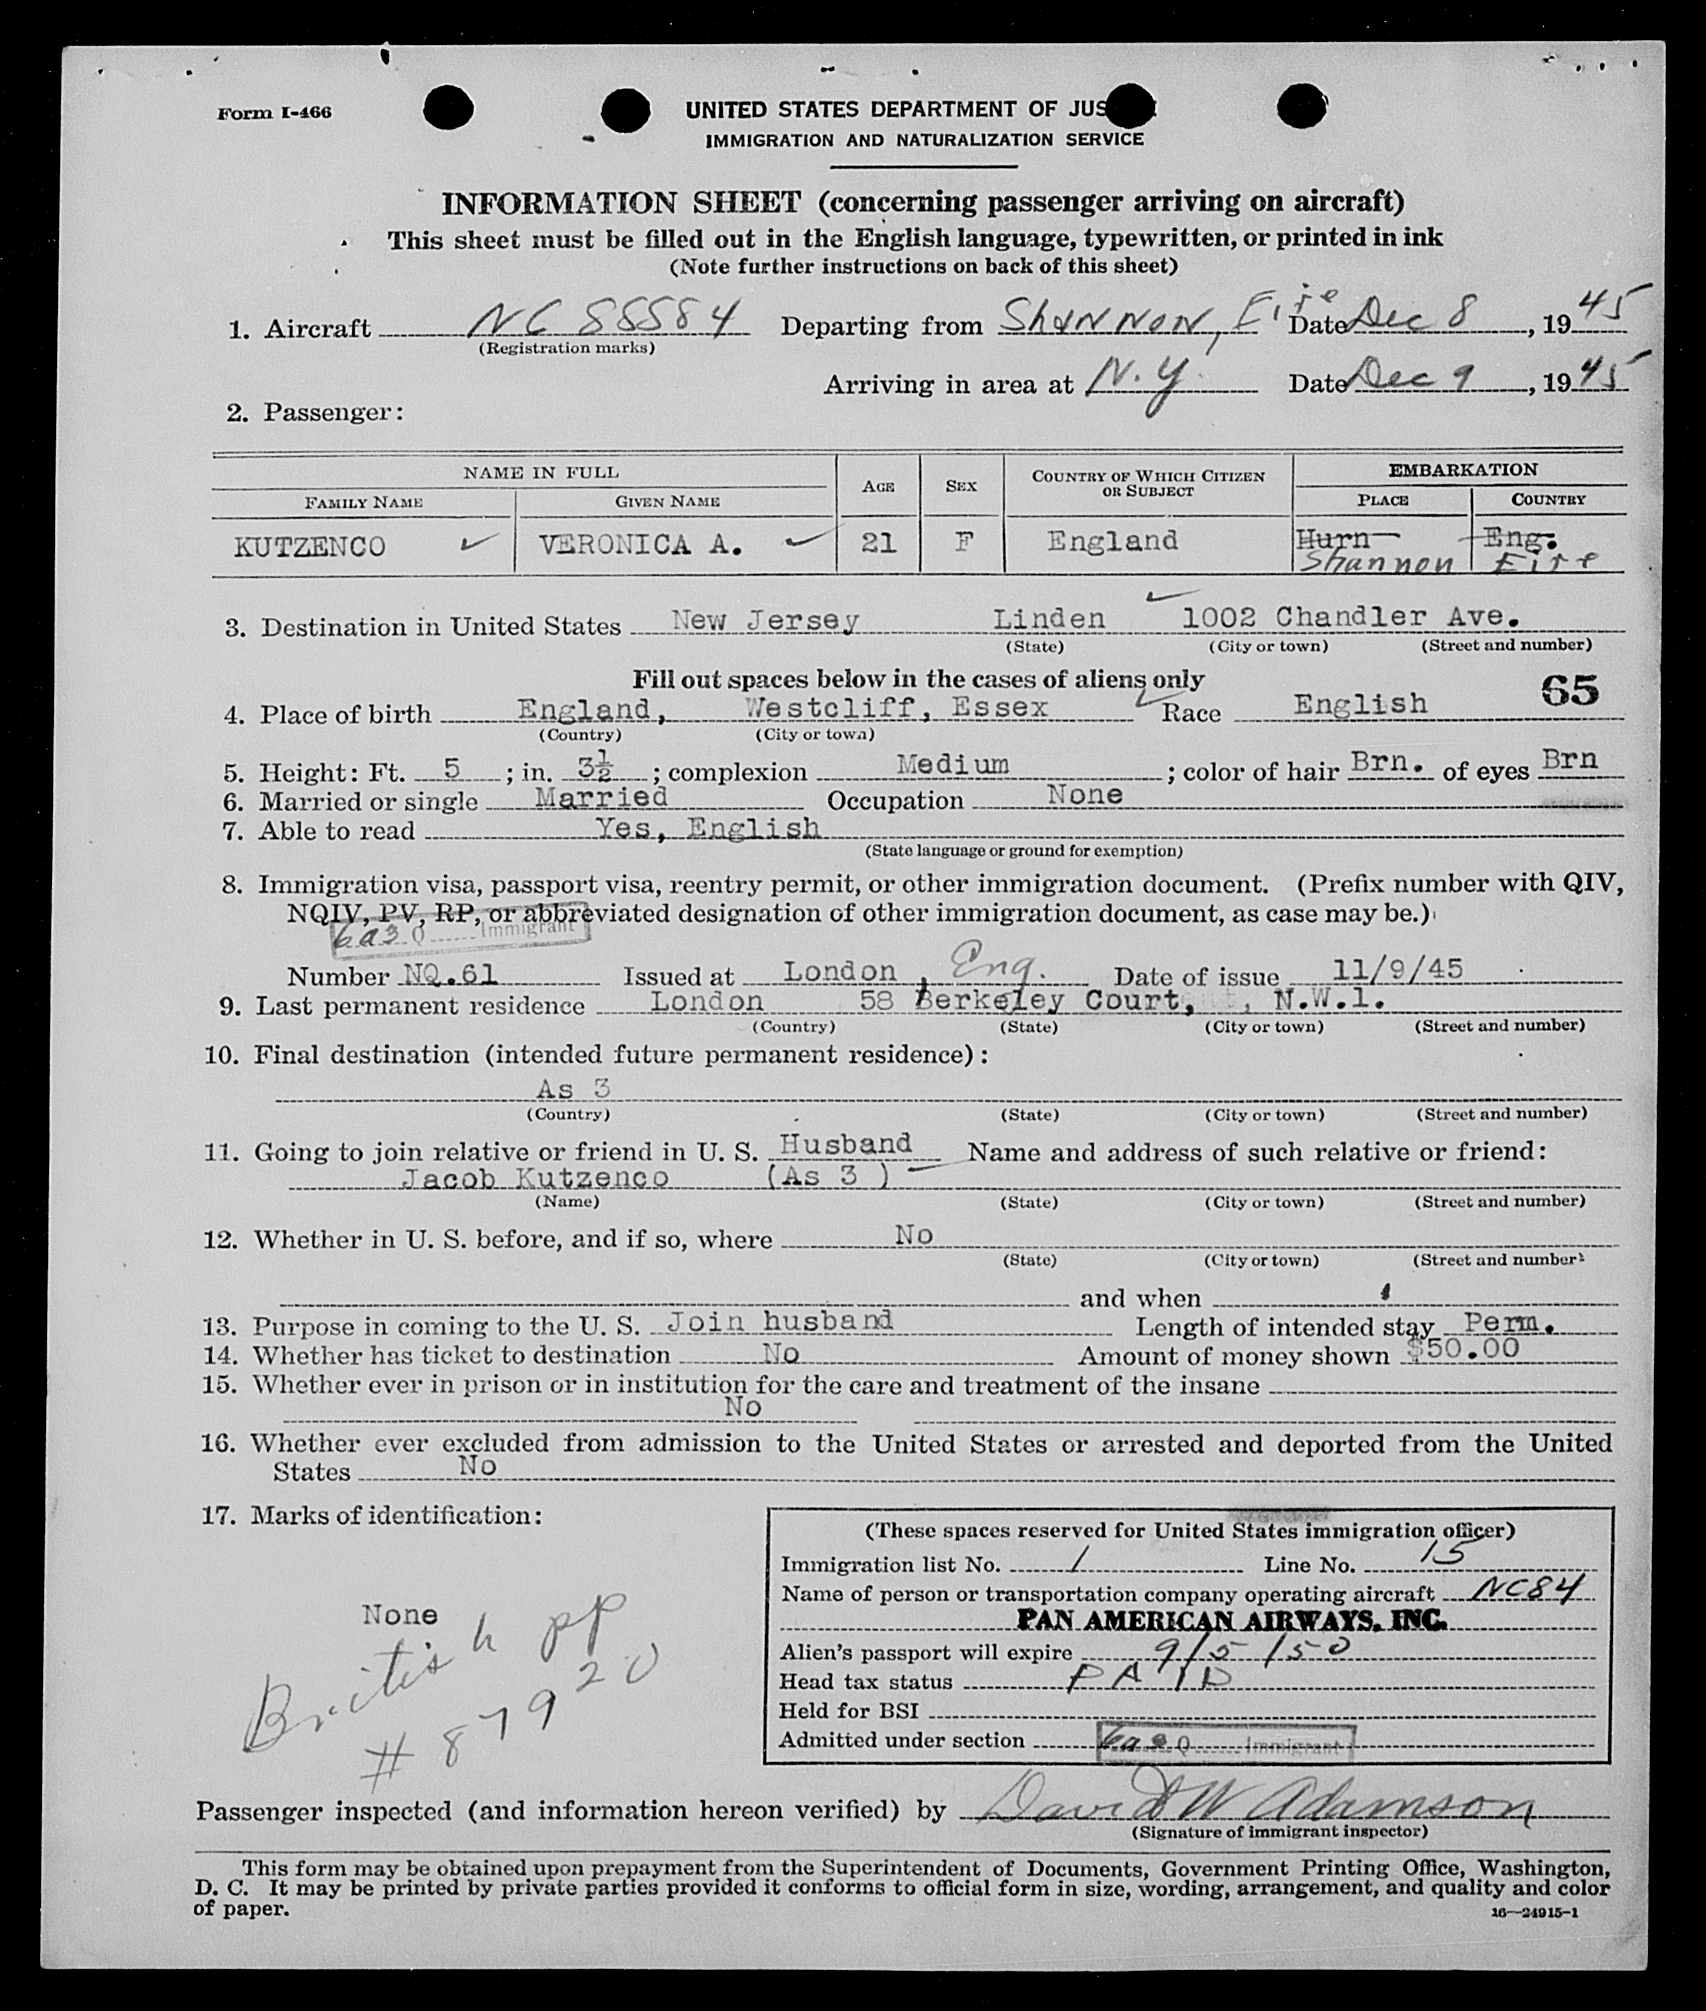 Form I-466
UNITED STATES DEPARTMENT OF JUS
IMMIGRATION AND NATURALIZATION SERVICE
INFORMATION SHEET (concerning passenger arriving on aircraft)
This sheet must be filled out in the English language, typewritten, or printed in ink
(Note further instructions on back of this sheet)
1. Aircraft NC 88584 Departing from Shannon, Eire Date Dec 8, 1945
(Registration marks)
Arriving in area at N.Y. Date Dec 9, 1945
2. Passenger:
NAME IN FULL AGE SEX COUNTRY OF WHICH CITIZEN OR SUBJECT EMBARKATION
FAMILY NAME GIVEN NAME PLACE COUNTRY
KUTZENCO VERONICA A. 21 F England Hurn Eng.
Shannon Eire
3. Destination in United States New Jersey Linden 1002 Chandler Ave.
(State) (City or town) (Street and number)
Fill out spaces below in the cases of aliens only
65
4. Place of birth England, Westcliff, Essex Race English
(Country) (City or town)
5. Height: Ft. 5; in. 3½; complexion Medium; color of hair Brn. of eyes Brn
6. Married or single Married Occupation None
7. Able to read Yes, English
(State language or ground for exemption)
8. Immigration visa, passport visa, reentry permit, or other immigration document. (Prefix number with QIV,
NQIV, PV, RP, or abbreviated designation of other immigration document, as case may be.)
6a3 Q Immigrant
Number NQ.61 Issued at London, Eng. Date of issue 11/9/45
9. Last permanent residence London 58 Berkeley Court, N.W.1.
(Country) (State) (City or town) (Street and number)
10. Final destination (intended future permanent residence):
As 3
(Country) (State) (City or town) (Street and number)
11. Going to join relative or friend in U. S. Husband Name and address of such relative or friend:
Jacob Kutzenco (As 3 )
(Name) (State) (City or town) (Street and number)
12. Whether in U. S. before, and if so, where No
(State) (City or town) (Street and number)
and when
13. Purpose in coming to the U. S. Join husband Length of intended stay Perm.
14. Whether has ticket to destination No Amount of money shown $50.00
15. Whether ever in prison or in institution for the care and treatment of the insane
No
16. Whether ever excluded from admission to the United States or arrested and deported from the United
States No
17. Marks of identification:
None
British pp
# 87920
(These spaces reserved for United States immigration officer)
Immigration list No. 1 Line No. 15
Name of person or transportation company operating aircraft NC84
PAN AMERICAN AIRWAYS, INC.
Alien's passport will expire 9/5/50
Head tax status PAID
Held for BSI
Admitted under section 6a3 Q Immigrant
Passenger inspected (and information hereon verified) by David W Adamson
(Signature of immigrant inspector)
This form may be obtained upon prepayment from the Superintendent of Documents, Government Printing Office, Washington,
D. C. It may be printed by private parties provided it conforms to official form in size, wording, arrangement, and quality and color
of paper.
16—24915-1